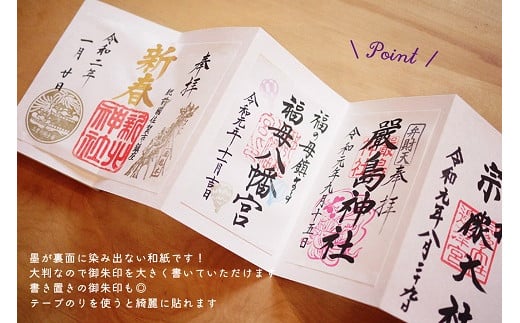 \ Point /
奉拝
新春
令和二年
一月廿日
新北神社
奉拝
福の母鎮まります
福母八幡宮
令和元年十一月吉日
弁財天奉拝
嚴島神社
令和元年九月十五日
宗像大社
令和元年八月二十九日
墨が裏面に染み出ない和紙です！
大判なので御朱印を大きく書いていただけます
書き置きの御朱印も◎
テープのりを使うと綺麗に貼れます